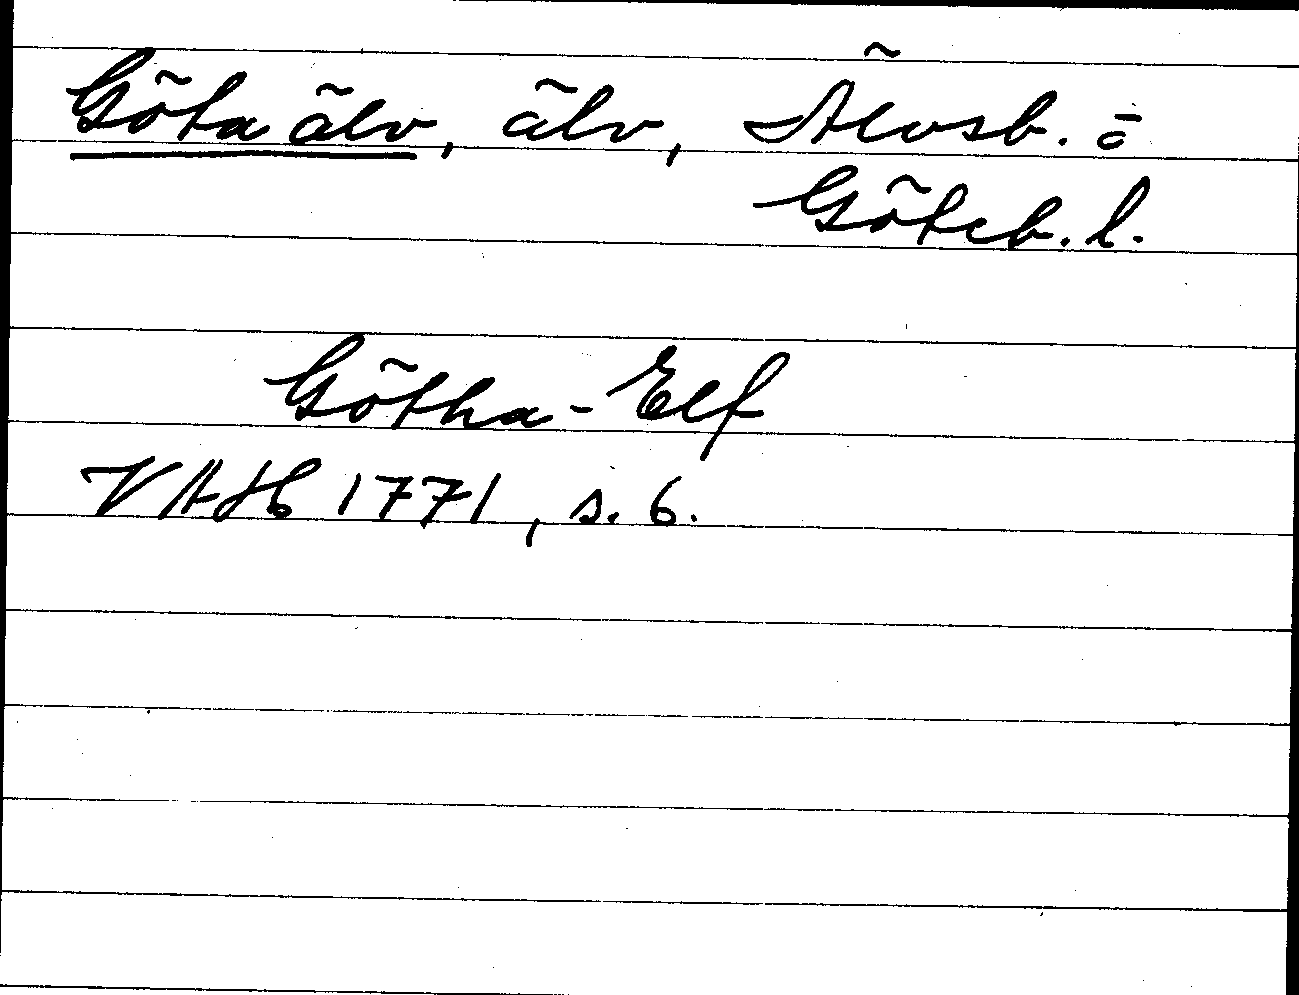 Göta älv, älv, Älvsb. o
Göteb. l.
Götha-Elf
VAH 1771, s. 6.